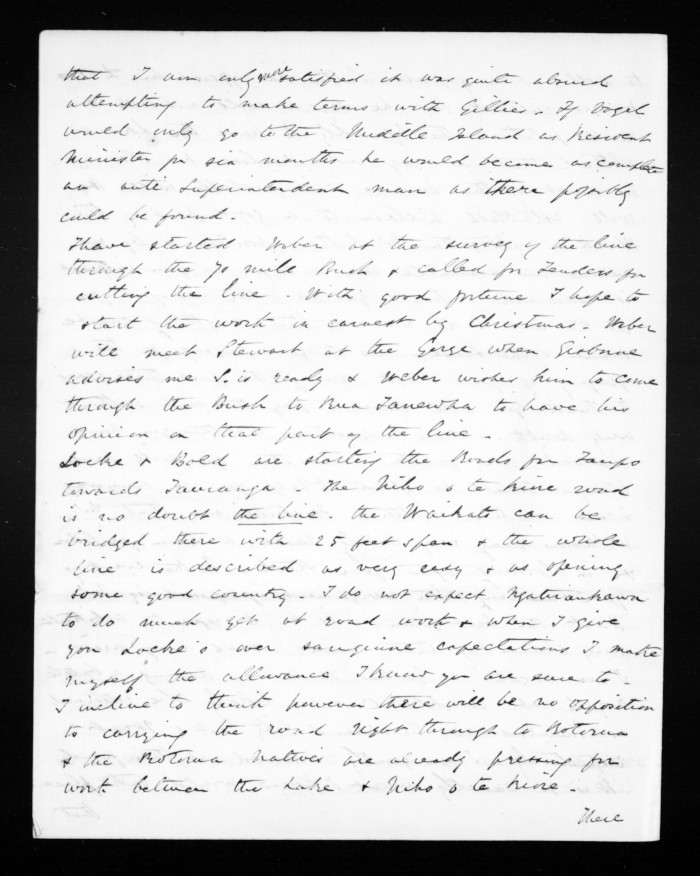 that I am only more satisfied it was quite absurd
attempting to make terms with Gillies. If Vogel
would only go to the Middle Island as Resident
Minister for six months he would become as complete
an anti Superintendent man as there possibly
could be found.
I have started Weber at the survey of the line
through the 70 mile Bush & called for Tenders for
cutting the line. With good fortune I hope to
start the work in earnest by Christmas. Weber
will meet Stewart at the Gorge when Gisborne
advises me S. is ready & Weber wishes him to come
through the Bush to Rua Tanewha to have his
opinion on that part of the line.
Locke & Bold are starting the Roads from Taupo
towards Tauranga. The Niho o te Kiore road
is no doubt the line. the Waikato can be
bridged there with 25 feet span & the whole
line is described as very easy & as opening
some good country. I do not expect Ngatiraukawa
to do much yet at road work & when I give
you Locke's over sanguine expectations I make
myself the allowance I know you are sure to.
I incline to think however there will be no opposition
to carrying the road right through to Rotorua
& the Rotorua natives are already pressing for
work between the Lake & Niho o te Kiore.
There